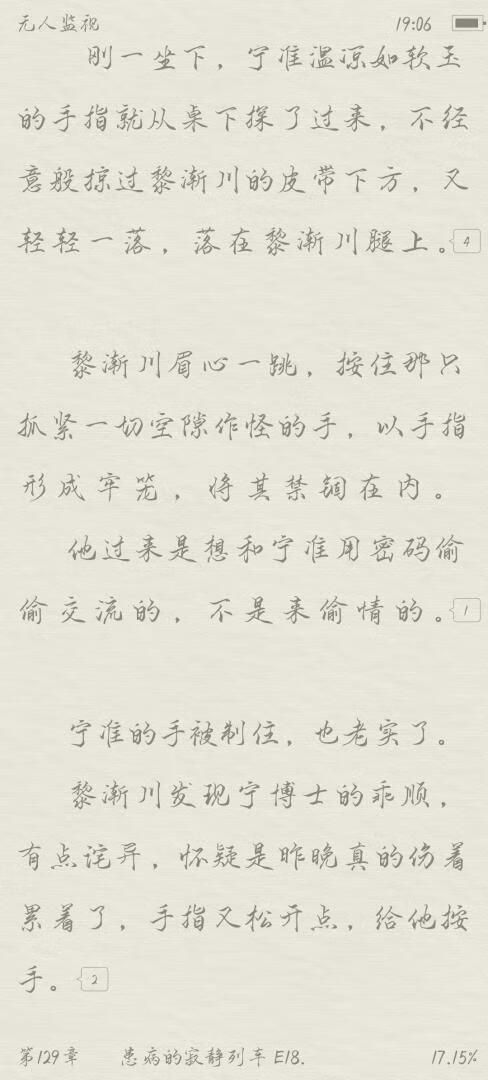 无人监视 19:06
刚一坐下，宁准温凉如软玉
的手指就从桌下探了过来，不经
意般掠过黎渐川的皮带下方，又
轻轻一落，落在黎渐川腿上。4
黎渐川眉心一跳，按住那只
抓紧一切空隙作怪的手，以手指
形成牢笼，将其禁锢在内。
他过来是想和宁准用密码偷
偷交流的，不是来偷情的。1
宁准的手被制住，也老实了。
黎渐川发现宁博士的乖顺，
有点诧异，怀疑是昨晚真的伤着
累着了，手指又松开点，给他按
手。2
第129章 患病的寂静列车 E18. 17.15%